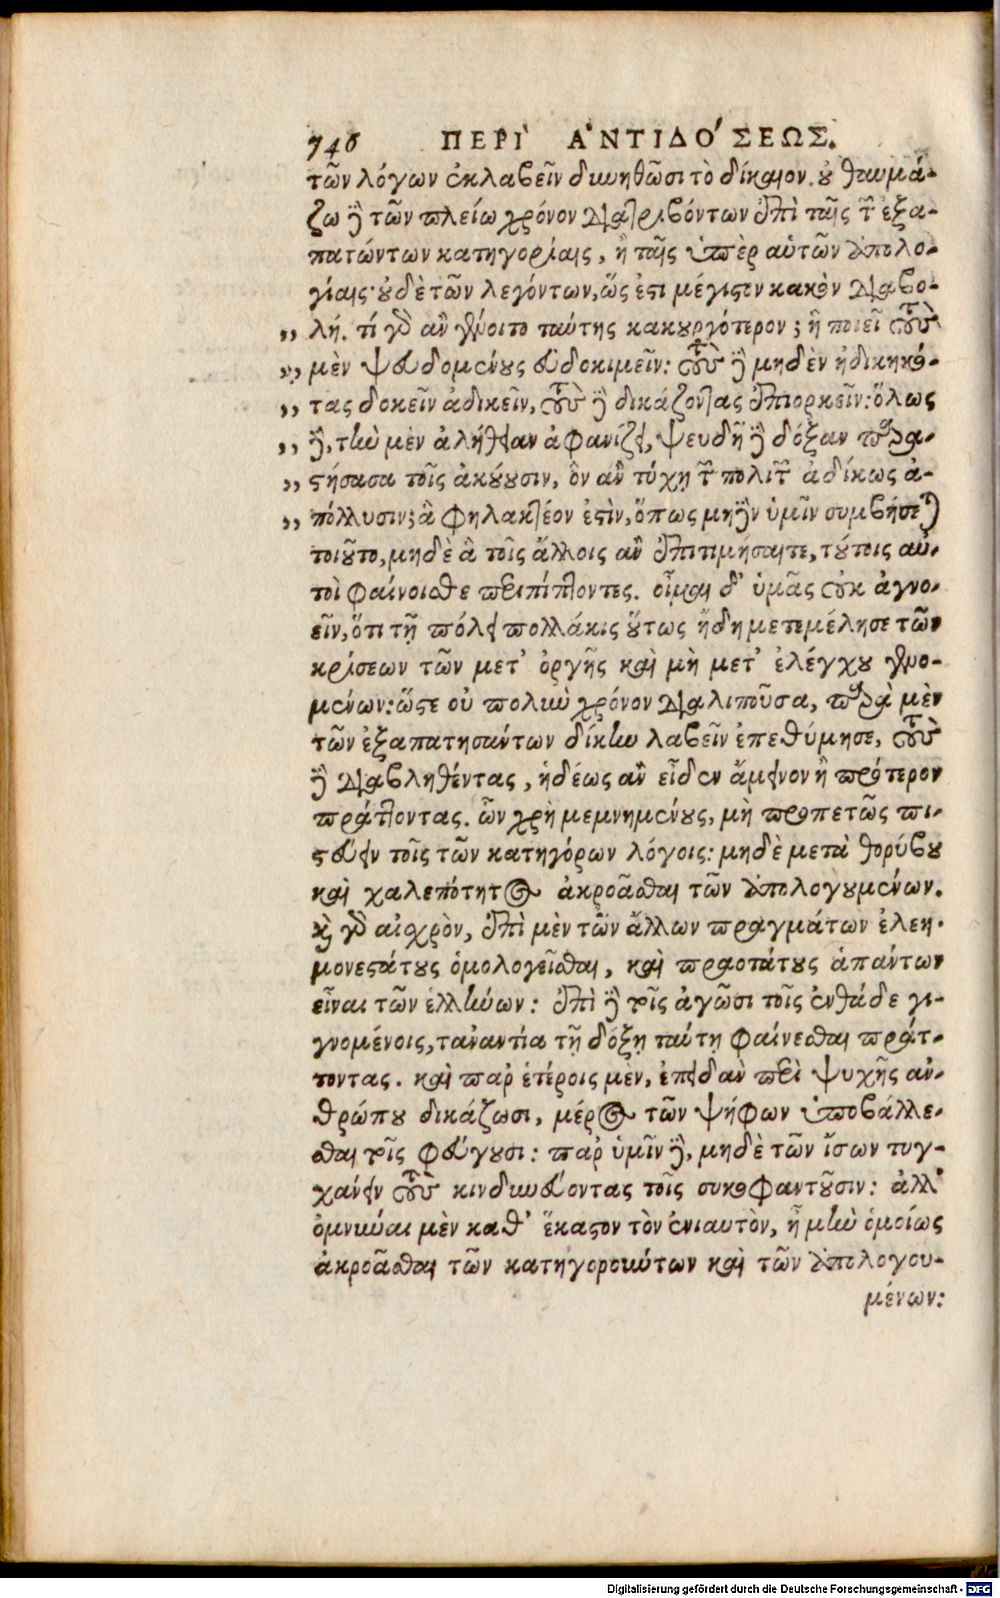 746 ΠΕΡΙ` Ἀ'ΝΤΙΔΟ'ΣΕΩΣ.
τῶν λόγων ἐκλαβεῖν δυνηθῶσι τὸ δίκαιον. οὐ θαυμά-
ζω δὲ τῶν πλείω χρόνον διατριβόντων ἐπὶ ταῖς τῶν ἐξα-
πατώντων κατηγορίαις, ἢ ταῖς ὑπὲρ αὑτῶν ἀπολο-
γίαις· οὐδὲ τῶν λεγόντων, ὥς ἐστι μέγιστον κακὸν διαβο-
„ λή. τί γὰρ ἂν γένοιτο ταύτης κακουργότερον; ἣ ποιεῖ τοὺς
„ μὲν ψευδομένους εὐδοκιμεῖν: τοὺς δὲ μηδὲν ἠδικηκό-
„ τας δοκεῖν ἀδικεῖν, τοὺς δὲ δικάζοντας ἐπιορκεῖν: ὅλως
„ δὲ, τὴν μὲν ἀλήθειαν ἀφανίζει, ψευδῆ δὲ δόξαν παρα-
„ στήσασα τοῖς ἀκούουσιν, ὃν ἂν τύχῃ τῶν πολιτῶν ἀδίκως ἀ-
„ πόλλυσιν; ἃ φηλακτέον ἐστὶν, ὅπως μηδὲν ὑμῖν συμβήσεται
τοιοῦτο, μηδὲ ἃ τοῖς ἄλλοις ἂν ἐπιτιμήσαιτε, τούτοις αὐ-
τοὶ φαίνοισθε περιπίπτοντες. οἶμαι δ' ὑμᾶς οὐκ ἀγνο-
εῖν, ὅτι τῇ πόλει πολλάκις οὕτως ἤδη μετεμέλησε τῶν
κρίσεων τῶν μετ' ὀργῆς καὶ μὴ μετ' ἐλέγχου γενο-
μένων: ὥστε οὐ πολὺν χρόνον διαλιποῦσα, παρὰ μὲν
τῶν ἐξαπατησάντων δίκην λαβεῖν ἐπεθύμησε, τοὺς
δὲ διαβληθέντας, ἡδέως ἂν εἶδεν ἄμεινον ἢ πρότερον
πράττοντας. ὧν χρὴ μεμνημένους, μὴ προπετῶς πι-
στεύειν τοῖς τῶν κατηγόρων λόγοις: μηδὲ μετὰ θορύβου
καὶ χαλεπότητος ἀκροᾶσθαι τῶν ἀπολογουμένων.
καὶ γὰρ αἰσχρὸν, ἐπὶ μὲν τῶν ἄλλων πραγμάτων ἐλεη-
μονεστάτους ὁμολογεῖσθαι, καὶ πραοτάτους ἁπάντων
εἶναι τῶν ἑλλήνων: ἐπὶ δὲ τοῖς ἀγῶσι τοῖς ἐνθάδε γι-
γνομένοις, τἀναντία τῇ δόξῃ ταύτῃ φαίνεσθαι πράτ-
τοντας. καὶ παρ' ἑτέροις μὲν, ἐπειδὰν περὶ ψυχῆς ἀν-
θρώπου δικάζωσι, μέρος τῶν ψήφων ὑποβάλλε-
σθαι τοῖς φεύγουσι: παρ' ὑμῖν δὲ, μηδὲ τῶν ἴσων τυγ-
χάνειν τοὺς κινδυνεύοντας τοῖς συκοφαντοῦσιν: ἀλλ'
ὀμνύναι μὲν καθ' ἕκαστον τὸν ἐνιαυτὸν, ἦ μὴν ὁμοίως
ἀκροᾶσθαι τῶν κατηγορούντων καὶ τῶν ἀπολογου-
μένων:
Digitalisierung gefördert durch die Deutsche Forschungsgemeinschaft - DFG